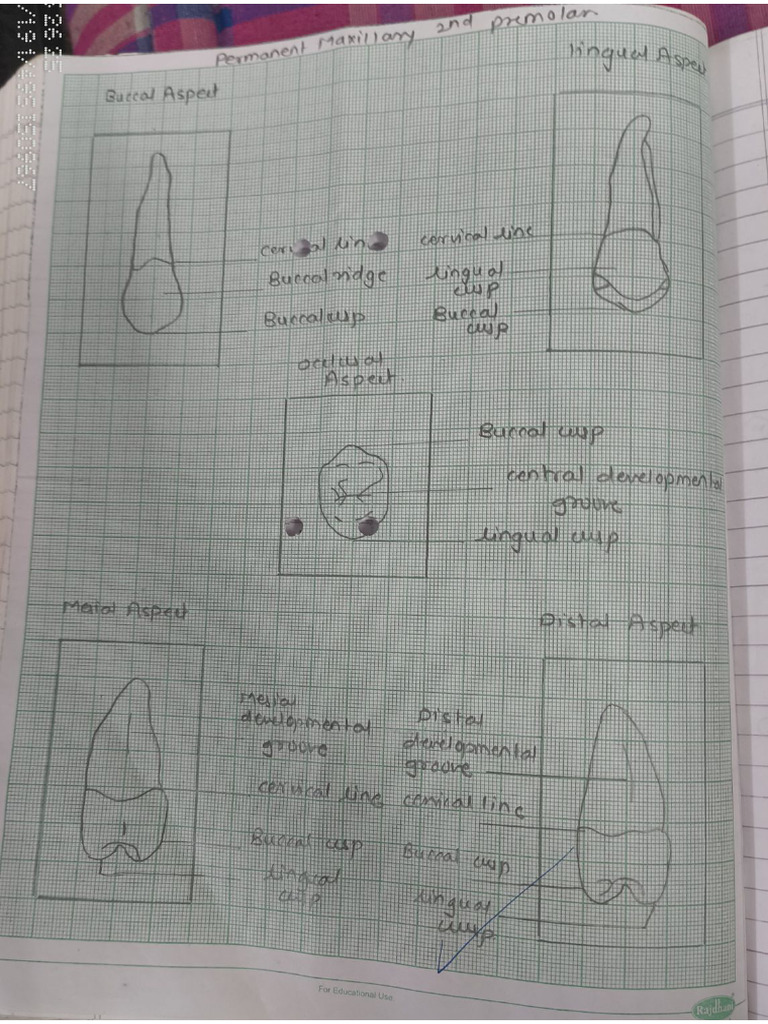 Permanent Maxillary 2nd premolar
Buccal Aspect
lingual Aspect
cervical line
Buccal ridge
Buccal cusp
cervical line
lingual
cusp
Buccal
cusp
occlusal
Aspect
Buccal cusp
central developmental
groove
lingual cusp
Mesial Aspect
Distal Aspect
Mesial
developmental
groove
cervical line
Buccal cusp
lingual
cusp
Distal
developmental
groove
cervical line
Buccal cusp
lingual
cusp
For Educational Use